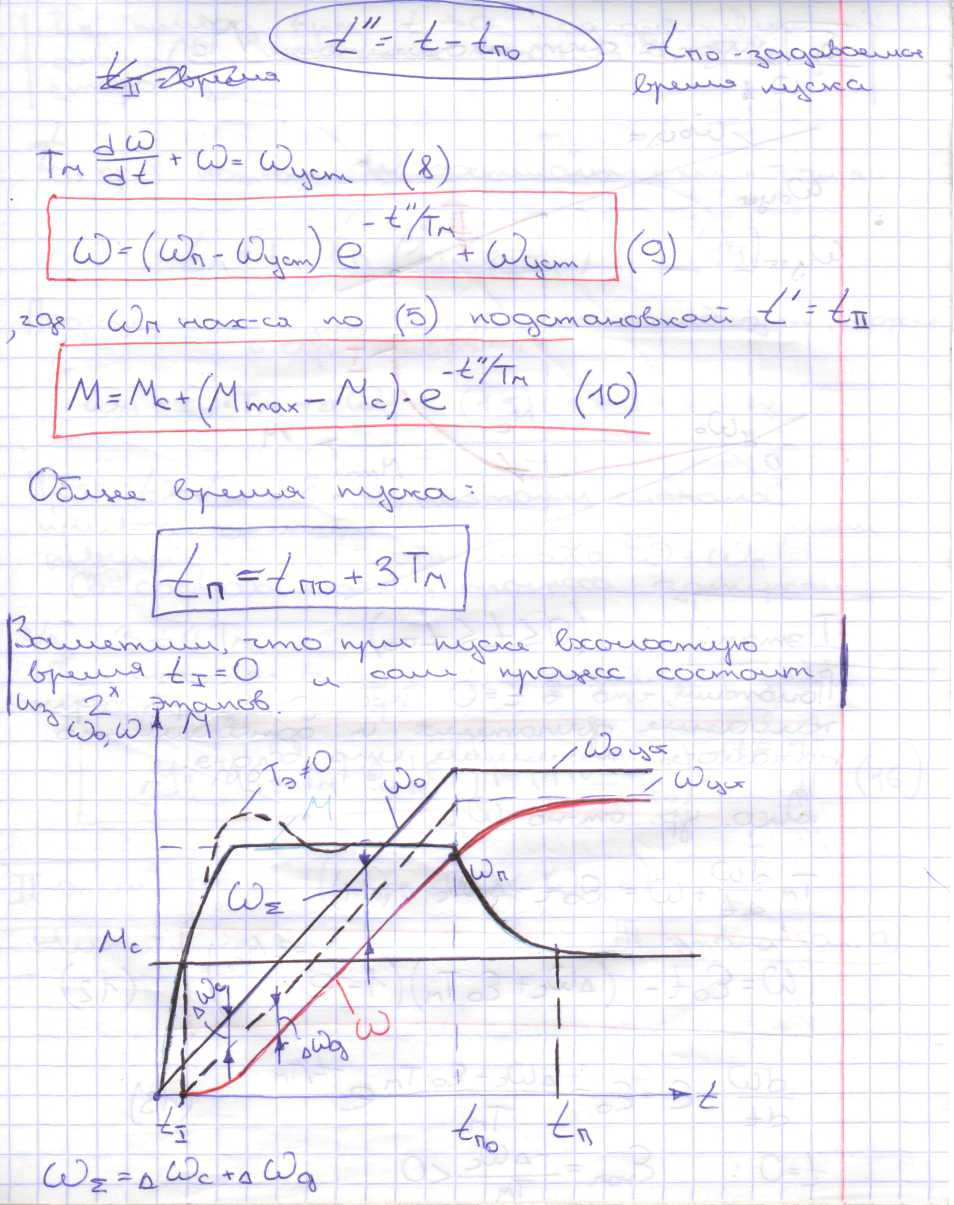 t'' = t - tпо
tпо - задаваемое
время пуска
tII = время
Tм dω/dt + ω = ωуст (8)
ω = (ωп - ωуст) e^(-t''/Tм) + ωуст (9)
, где ωп нах-ся по (5) подстановкой t' = tII
M = Mc + (Mmax - Mc) · e^(-t''/Tм) (10)
Общее время пуска:
tп = tпо + 3Tм
Заметим, что при пуске вхолостую
время tI = 0 и сам процесс состоит
из 2х этапов.
ω0, ω M
Tэ ≠ 0
M
ω0
ω0 уст
ωуст
ωп
ωΣ
Mc
Δωc
Δωд
ω
t
tI
tп0
tп
ωΣ = Δωc + Δωд